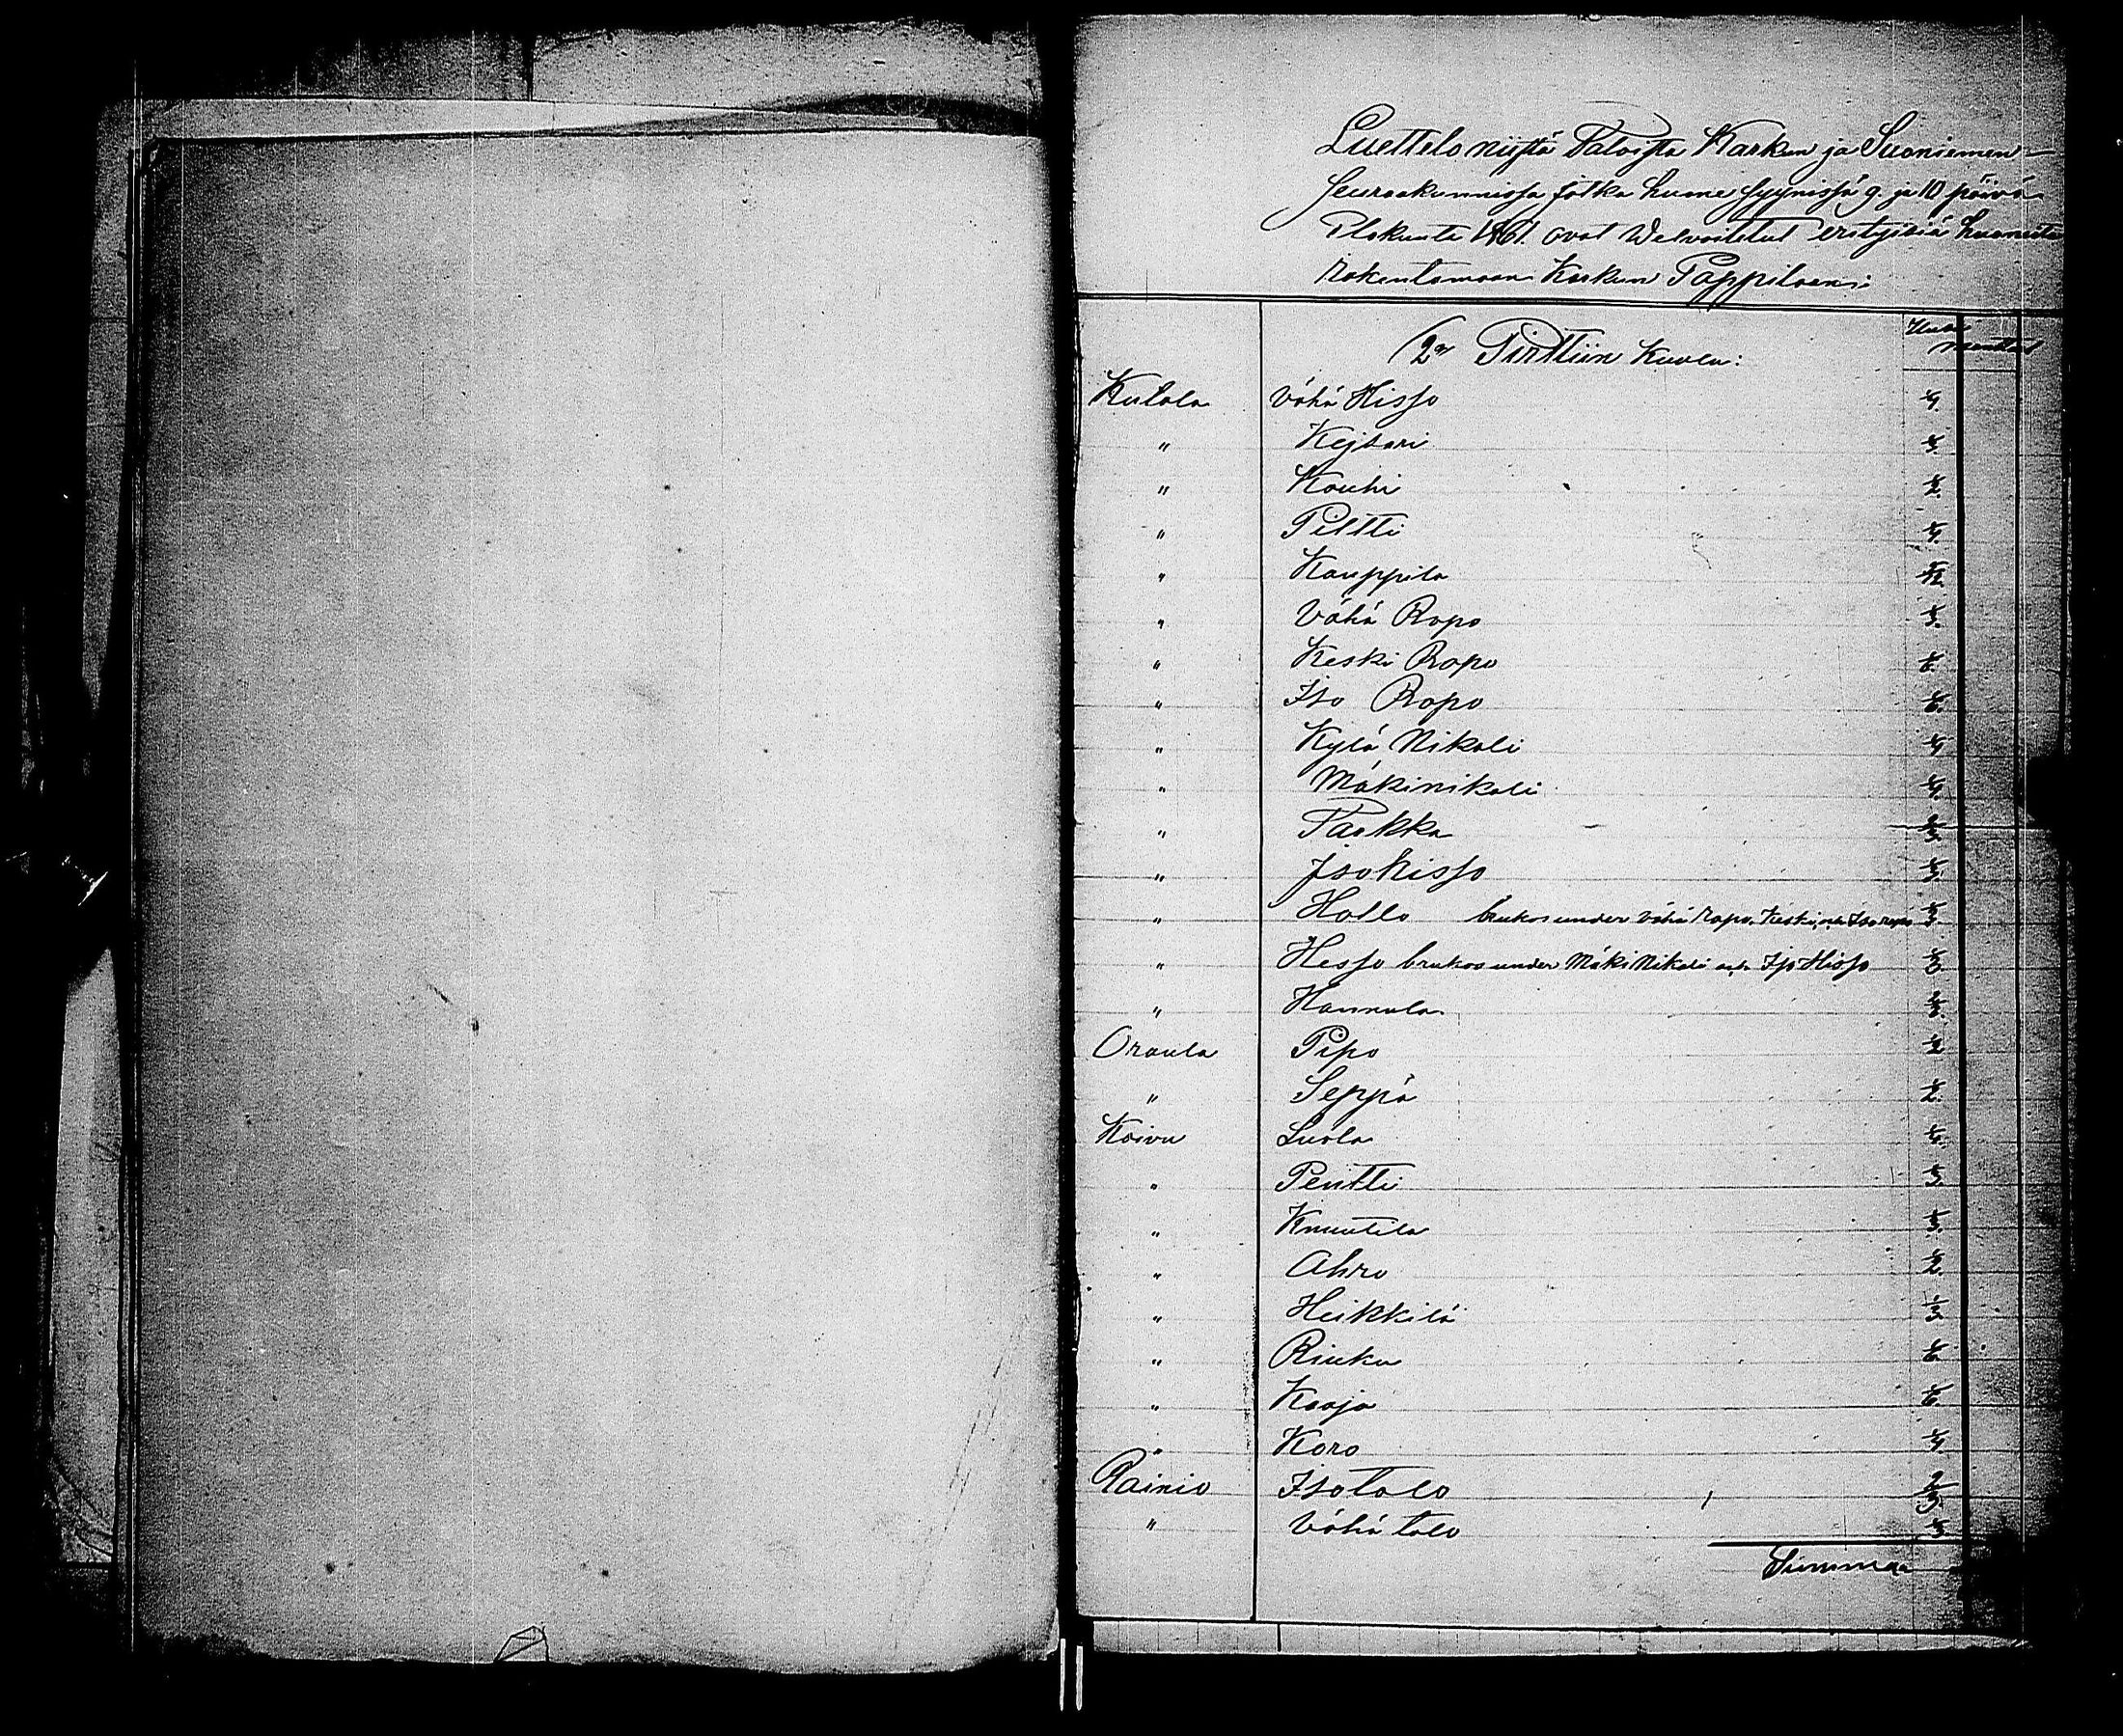 Luettelo niistä Taloista Karkun ja Suoniemen
Seurakunnissa jotka huone syynissä 9 ja 10 päivä
Elokuuta 1861. ovat Velvoitetut erityisiä huoneita
Rakentamaan Karkun Pappilaan:
2:n Pirttiin Kuulu:
Kutala Vähä Hisso 1/4.
" Kejsari 1/3.
" Kouhi 1/2.
" Piltti 1/4.
" Kauppila
" Vähä Ropo 1/3.
" Keski Ropo 1/6.
" Iso Ropo 1/6.
" Kylä Nikali 1/4
" Mäkinikali 1/4.
" Paokka
" Iso Hisso 1/3.
" Hollo brukas under vähä Ropo, Keski och Iso ropo
" Hesso brukas under Mäki Nikali och Iso Hisso
" Hannula
Oraula Pipo 1/2
" Seppä 1/2.
Koivu Luola 1/4.
" Pentti 1/3
" Knuutila 1/3.
" Ahro 1/2.
" Heikkilä 1/3
" Riuku 1/6.
" Kaaja 1/6.
" Koro 1/4
Rainio Isotalo 2/3.
" Vähä talo 1/3
Summa